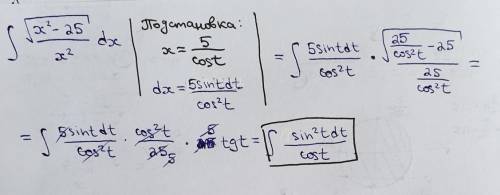 ∫ √(x² - 25) / x² dx | Подстановка: x = 5/cost dx = 5sintdt/cos²t | = ∫ 5sintdt/cos²t • √(25/cos²t - 25) / (25/cos²t) =
= ∫ 5sintdt/cos²t · cos²t/25 5 · 5 tgt = ∫ sin²tdt/cost